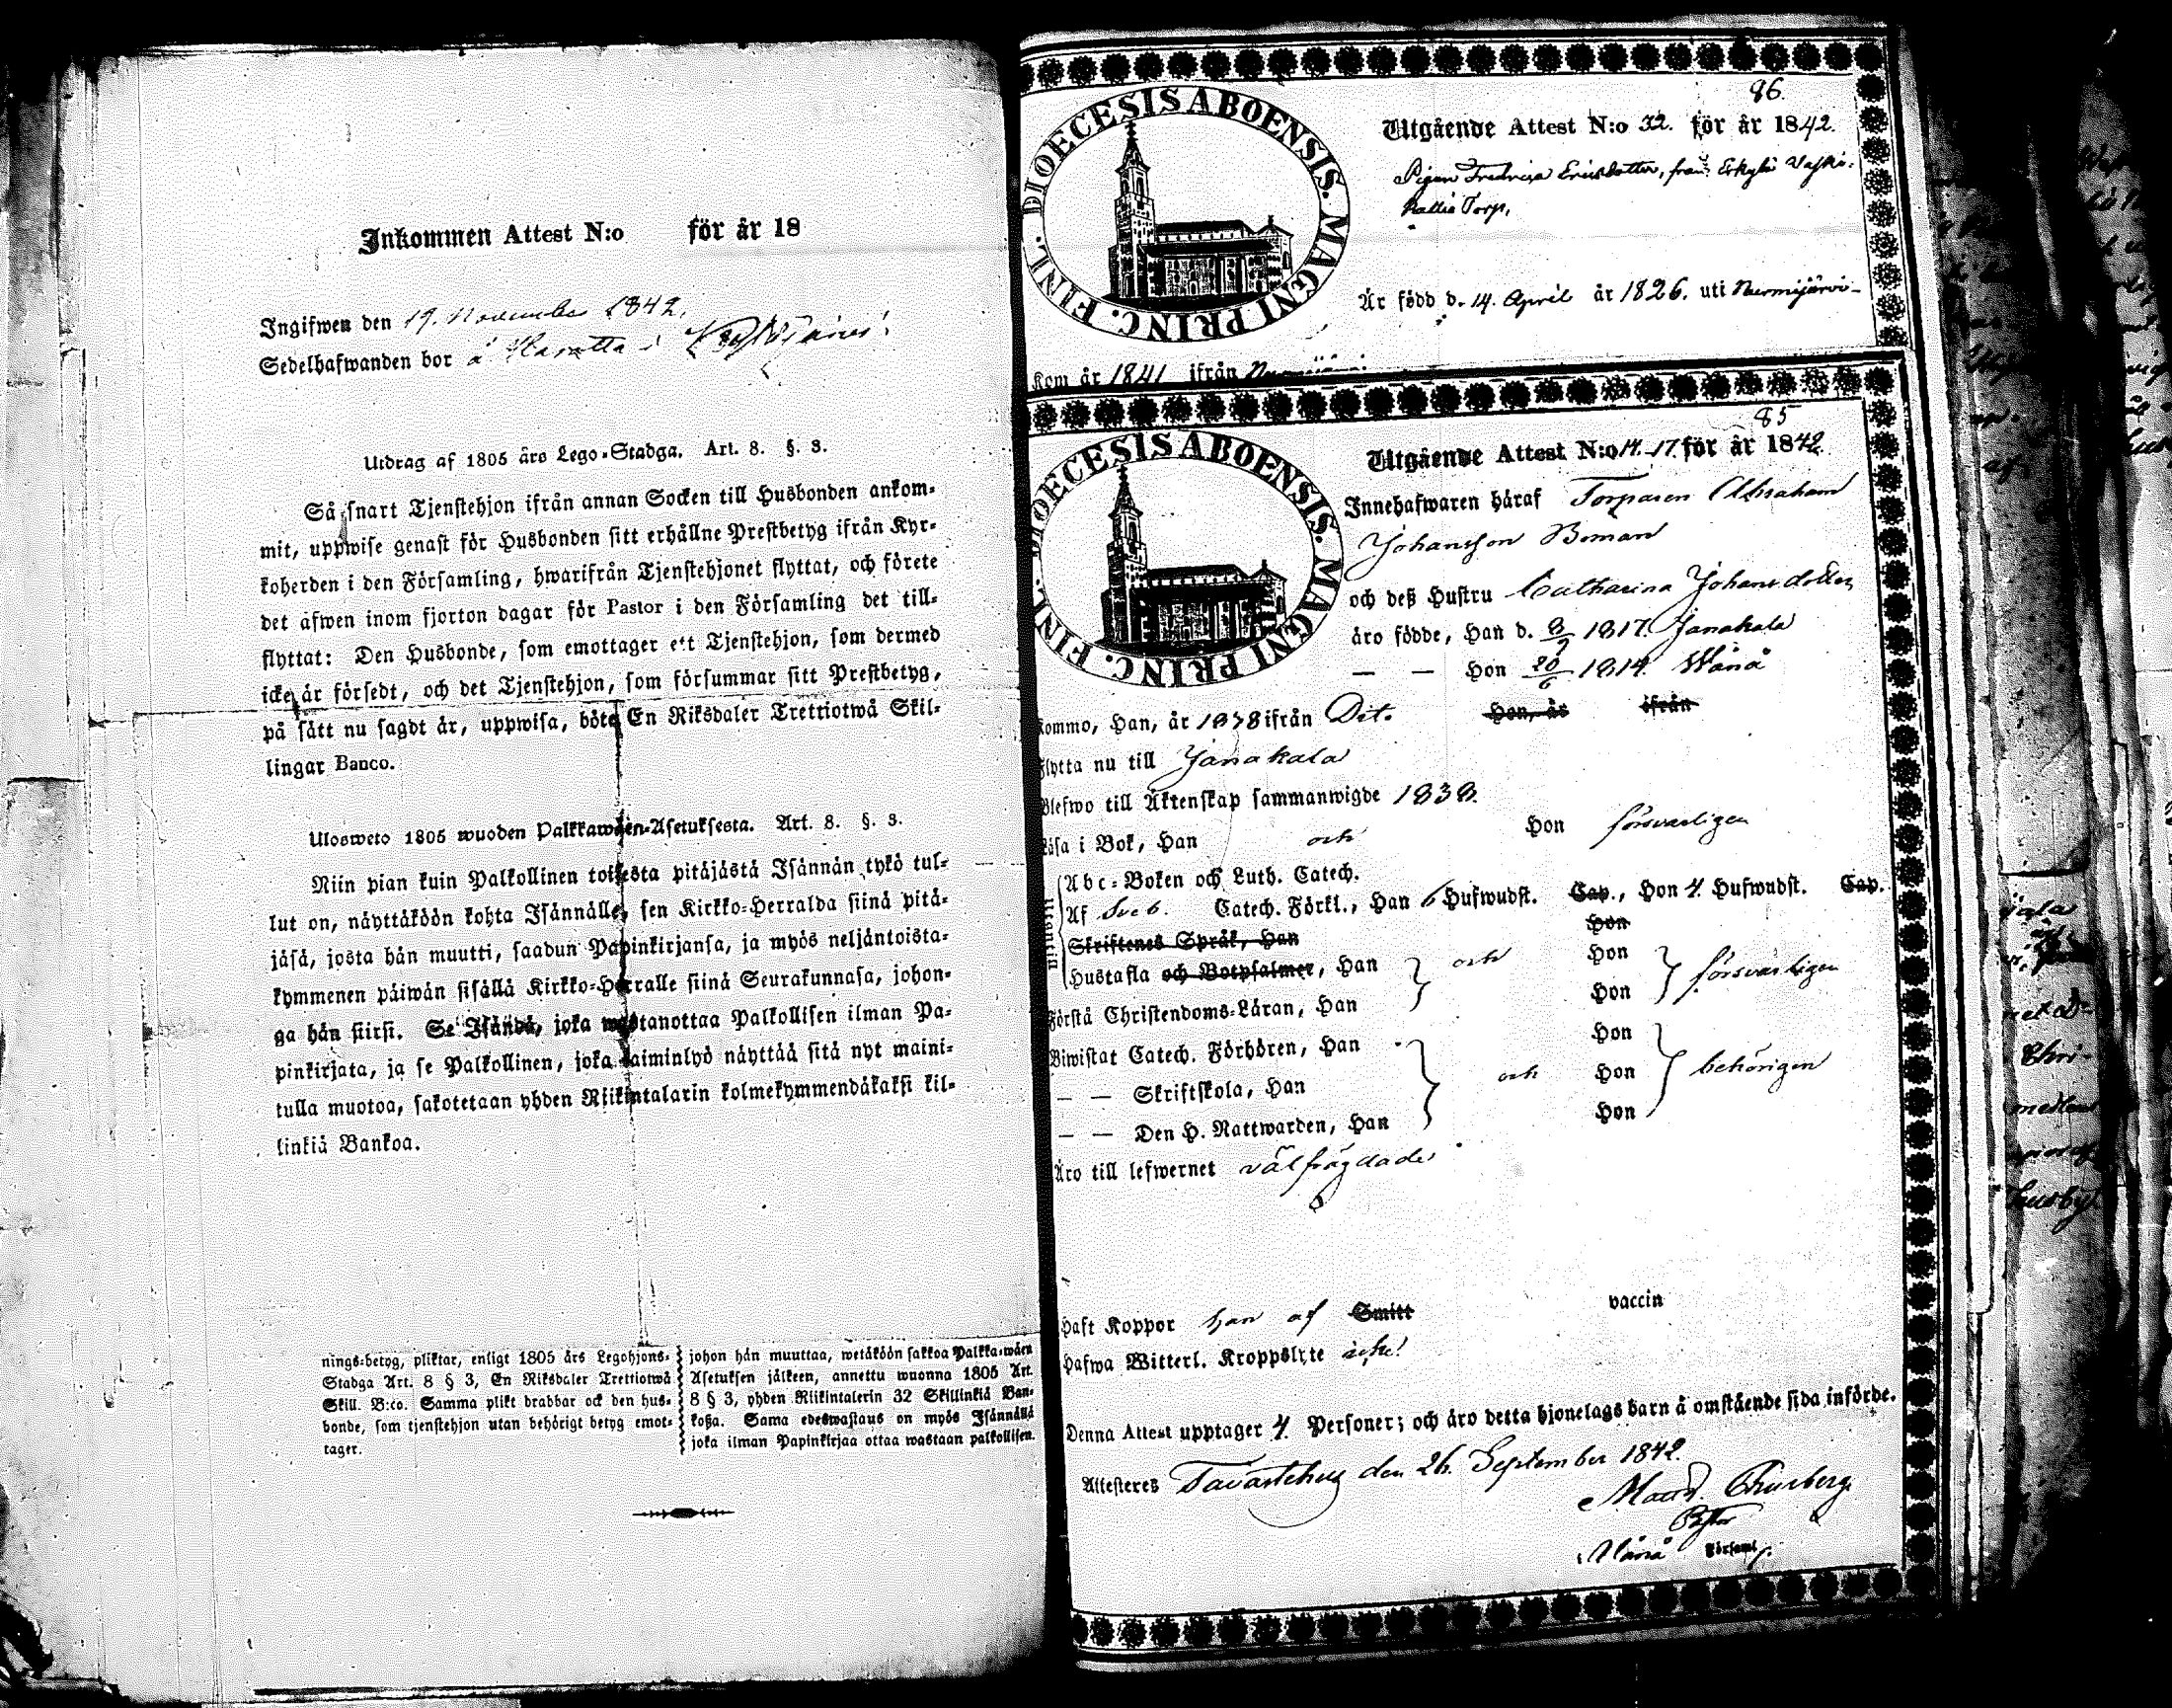 Inkommen Attest N:o för år 18
Ingifwen den 19. November 1842.
Sedelhafwanden bor å Haratta i
Utdrag af 1805 års Lego-Stadga. Art. 8. §. 3.
Så snart Tjenstehjon ifrån annan Socken till Husbonden ankom-
mit, uppwise genast för Husbonden sitt erhållne Prestbetyg ifrån Kyr-
koherden i den Församling, hwarifrån Tjenstehjonet flyttat, och förete
det äfwen inom fjorton dagar för Pastor i den Församling det till-
flyttat: Den Husbonde, som emottager ett Tjenstehjon, som dermed
icke är försedt, och det Tjenstehjon, som försummar sitt Prestbetyg,
på sätt nu sagdt är, uppwisa, böte En Riksdaler Trettiotwå Skil-
lingar Banco.
Ulosweto 1805 wuoden Palkkawäen-Asetuksesta. Art. 8. §. 3.
Niin pian kuin Palkollinen toisesta pitäjästä Isännän tykö tul-
lut on, näyttäköön kohta Isännälle, sen Kirkko-Herralda siinä pitä-
jäsä, josta hän muutti, saadun Papinkirjansa, ja myös neljäntoista-
kymmenen päiwän sisällä Kirkko-Herralle siinä Seurakunnasa, johon-
ga hän siirsi. Se Isändä, joka wastanottaa Palkollisen ilman Pa-
pinkirjata, ja se Palkollinen, joka laiminlyö näyttää sitä nyt maini-
tulla muotoa, sakotetaan yhden Riikintalarin kolmekymmendäkaksi kil-
linkiä Bankoa.
nings-betyg, pliktar, enligt 1805 års Legohjons-
Stadga Art. 8 § 3, En Riksdaler Trettiotwå
Skill. B:co. Samma plikt drabbar ock den hus-
bonde, som tjenstehjon utan behörigt betyg emot-
tager.
johon hän muuttaa, wetäköön sakkoa Palkka-wäen
Asetuksen jälkeen, annettu wuonna 1805 Art.
8 § 3, yhden Riikintalerin 32 Skillinkiä Ban-
koßa. Sama edeswastaus on myös Isännällä
joka ilman Papinkirjaa ottaa wastaan palkollisen.
DIOECESIS ABOENSIS. MAGNI PRINC. FINL.
86.
Utgående Attest N:o 32. för år 1842.
Pigan Fredrica Ericsdotter, från Erkylä Vaski-
kallio Torp,
Är född d. 14. April år 1826. uti Nurmijärvi
Kom år 1841 ifrån Nurmijärvi
DIOECESIS ABOENSIS. MAGNI PRINC. FINL.
85
Utgående Attest N:o 14.-17. för år 1842.
Innehafwaren häraf Torparen Abraham
Johansson Boman
och deß Hustru Catharina Johansdotter
äro födde, Han d. 8/9 1817. Janakala
— — Hon 20/6 1814. Wånå
Kommo, Han, år 1838 ifrån Dit. Hon, år ifrån
Flytta nu till Janakala
Blefwo till Äktenskap sammanwigde 1838.
Läsa i Bok, Han och Hon försvarligen
Abc-Boken och Luth. Catech.
Af Sveb. Catech. Förkl., Han 6 Hufwudst. Cap., Hon 4. Hufwudst. Cap.
Skriftenes Språk, Han Hon
Hustafla och Botpsalmer, Han och Hon
Förstå Christendoms-Läran, Han Hon försvarligen
Biwistat Catech. Förhören, Han Hon
— — Skriftskola, Han och Hon behörigen
— — Den H. Nattwarden, Han Hon
Äro till lefwernet välfrägdade
Haft Koppor han af Smitt vaccin
Hafwa Witterl. Kroppslyte icke
Denna Attest upptager 4 Personer; och äro detta hjonelags barn å omstående sida införde.
Attesteres Tavastehus den 26. September 1842.
Thurberg
Pastor
Wånå Församl.